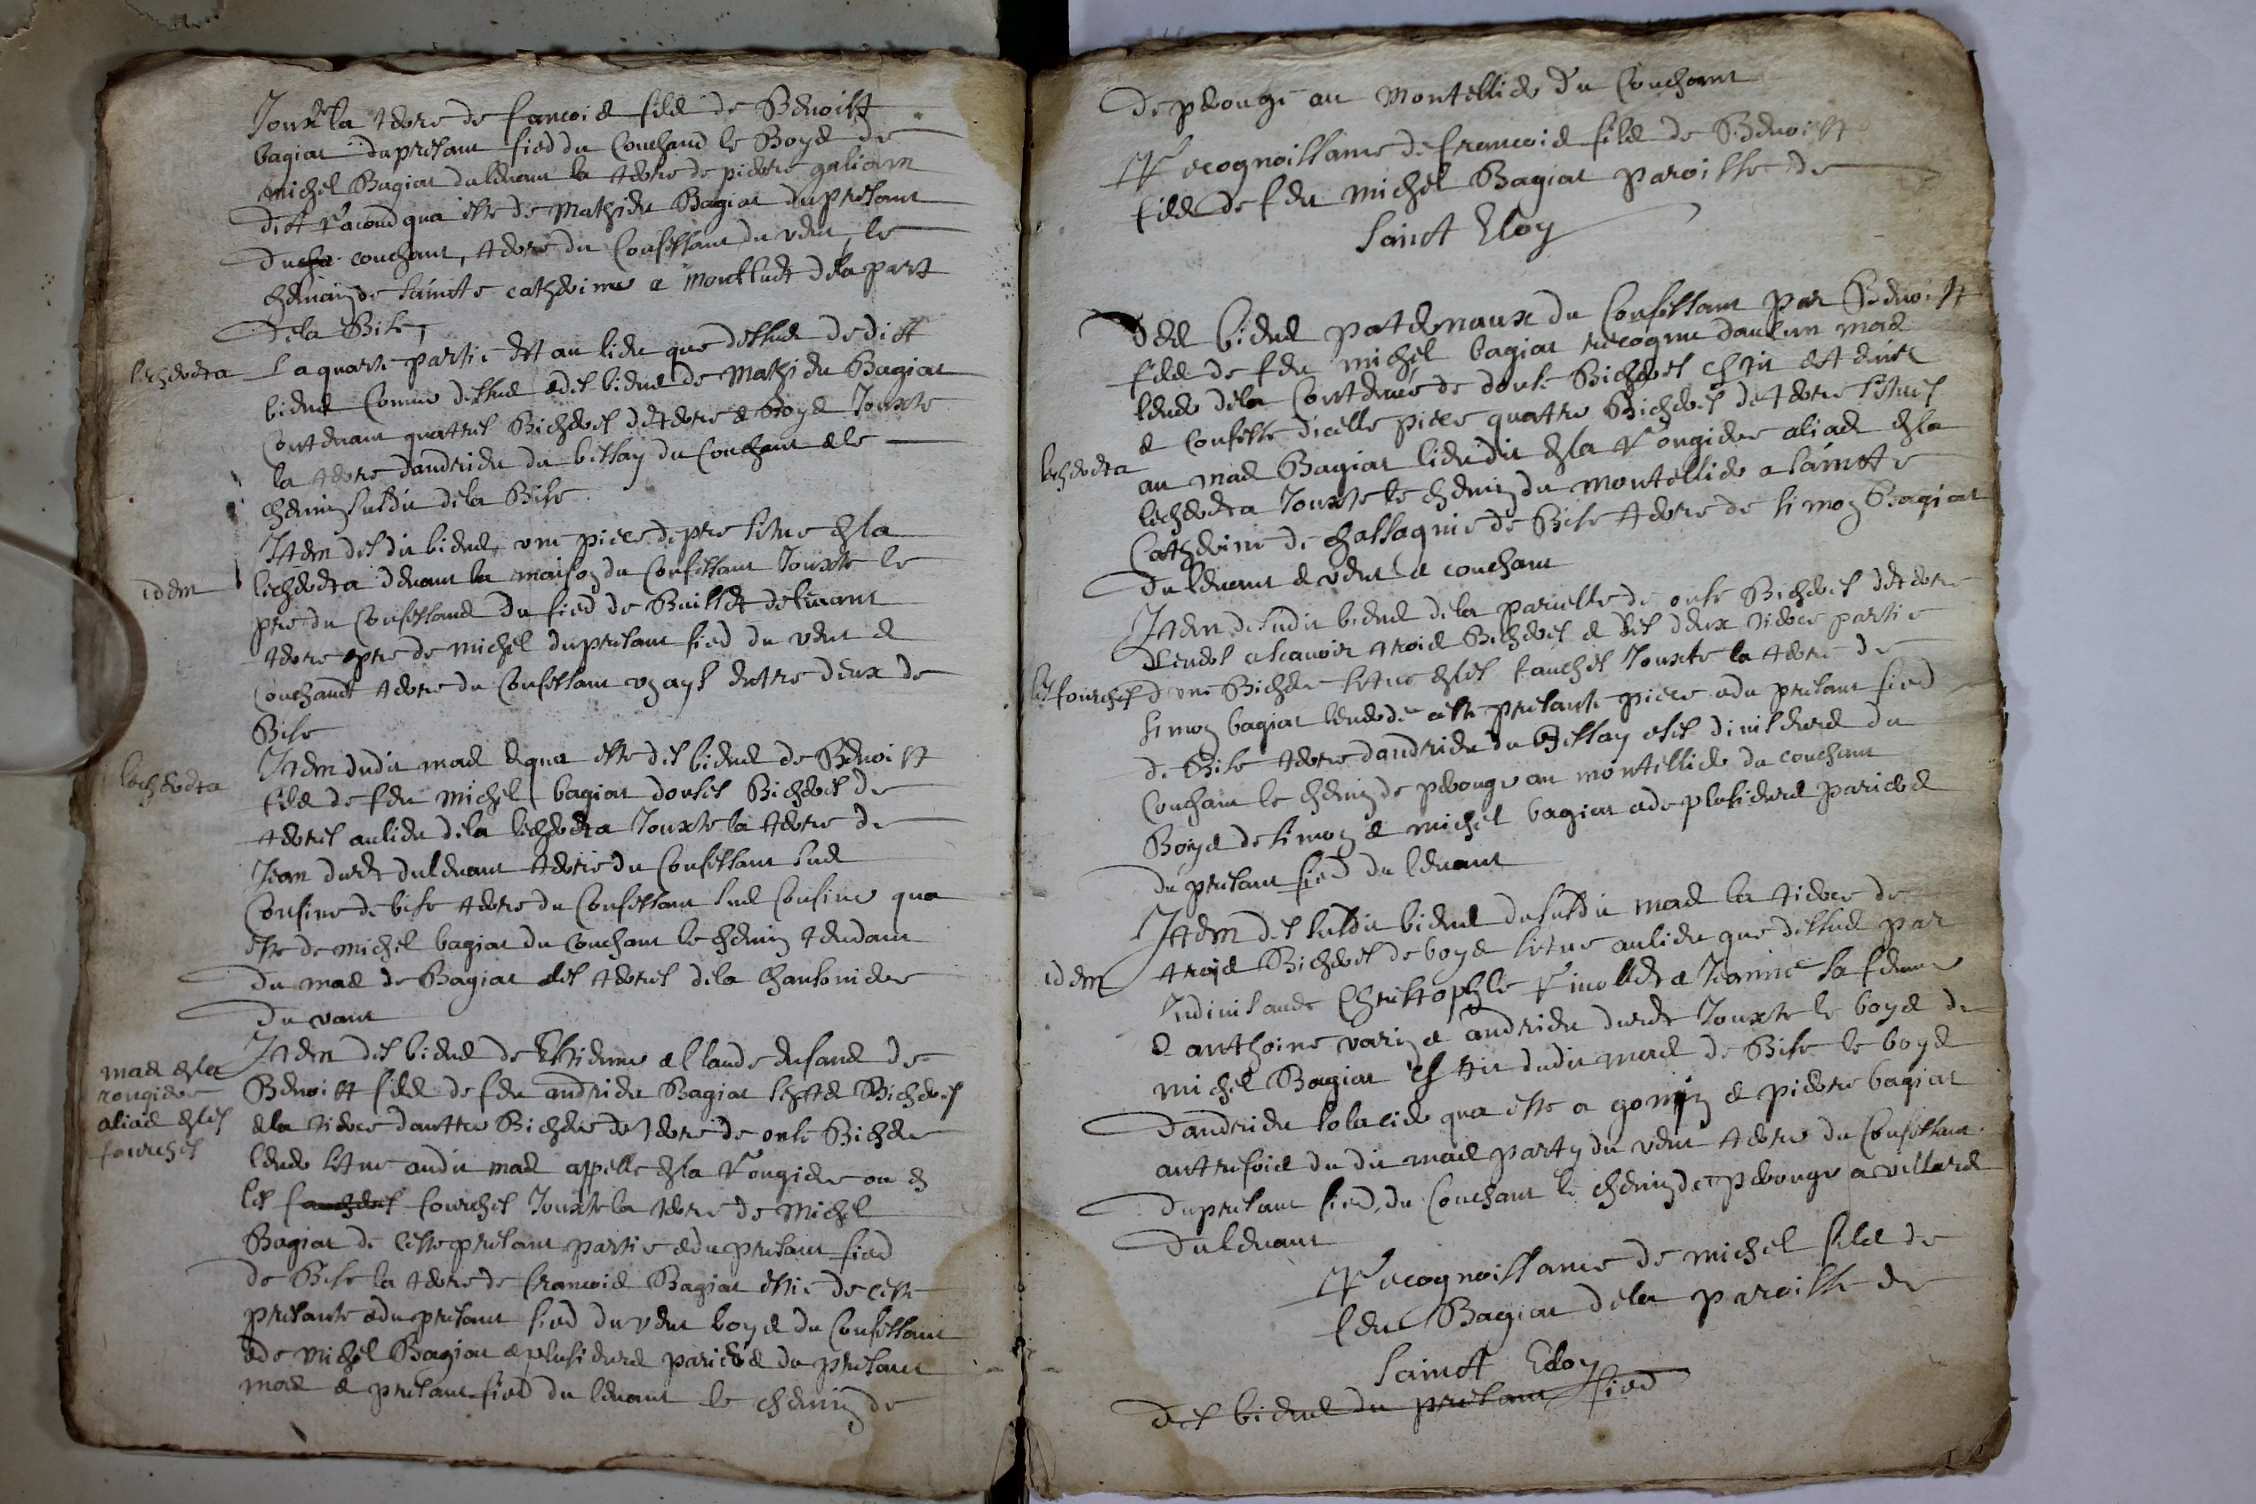 Jouxte la terre de francois filz de Benoist
bagiat du presant fied du Couchant le Boys de
michel Bagiat du levant la terre de pierre galiam
dict racond qua este de Mathieu Bagiat du presant
du couchant, terre du Confessant du vent, le
chemin de saincte catherine a montluel de la part
de la Bise,
lecherta
La quarte partie est au lieu que dessus de dict
biens Comme dessus et des biens de Mathieu Bagiat
Contenant quattres Bicherés de terre et boys Jouxte
la terre dandrieu du bessay du Couchant et le
chemin susdit de la Bise
idem
Item desdit biens, une piece de pre situe en la
lecherta devant la maison du Confessant Jouxte le
pre du Confessant du fied de Buisset de levant
terre et pre de michel du presant fied du vent et
Couchant terre du Confessant entre deux de
Bise
lecherta
Item dudit mas et qua este des biens de Benoist
filz de feu michel bagiat douses Bicherés de
terres au lieu de la lecherta Jouxte la terre de
Jean duret du levant terre du Confessant sus
Confine de bise terre du Confessant sus Confine qua
este de michel bagiat du Couchant le chemin tendant
du mas de Bagiat es terres de la chansoniere
du vant
mas en la
rongiere
alias en les
fourches
Item des biens de Estienne et Claude enfans de
Benoist filz de feu andrieu Bagiat sept Bicherés
et la tierce dauttre Bichere de terre de onse Bichere
lendo situe audit mas appelle en la Rongiere ou en
les fourches Jouxte la terre de Michel
Bagiat de ceste presant partie et du presant fied
de Bise la terre de francois Bagiat de ceste
presante et du presant fied du vent boys du Confessant
et de michel Bagiat et plusieurs pariers du presant
mas et presant fied du levant le chemin de
de perouge au montellier du Couchant
Recognoissance de francois filz de Benoist
filz de feu michel Bagiat paroisse de
Sainct Eloy
Des biens paternaux du Confessant par Benoist
filz de feu michel bagiat recogneu dans un mas
de la Contenue de douse Bicherés
et Confesse dicelle piece quattre Bicherés de terre situés
lecherta
au mas Bagiat lieu dit en la Rongiere alias en la
lecherta Jouxte le chemin du montellier a saincte
Catherine de chassagnie de Bise terre de simon Bagiat
du levant et vent et couchant
Item desudit biens de la parcelle de onse Bicherés de terre
a scavoir trois Bicherés et les deux tierce partie
les fourches
d une Bichere situe en les fauches Jouxte la terre de
simon bagiat de ceste presante piece et du presant fied
de Bise terre dandrieu du Bessay et ses diviseurs du
Couchant le chemin de perouge au montellier du couchant
Boys de simon et michel bagiat et de plusieurs pariers
du presant fied du levant
idem
Item des susdit biens du susdit mas la tierce de
trois Bicherés de boys situe au lieu que dessus par
Indivis avec Christophle et Jeanne sa femme
et anthoine et andrieu duret Jouxte le boys de
michel Bagiat dudit mas de Bise le boys
dandrieu qua este a et pierre bagiat
autresfois du dit mas party du vent terre du Confessant
du presant fied, du Couchant le chemin de perouge a villars
du levant
Recognoissance de michel filz de
feu Bagiat de la paroisse de
Sainct Eloy
Des biens du presant fied